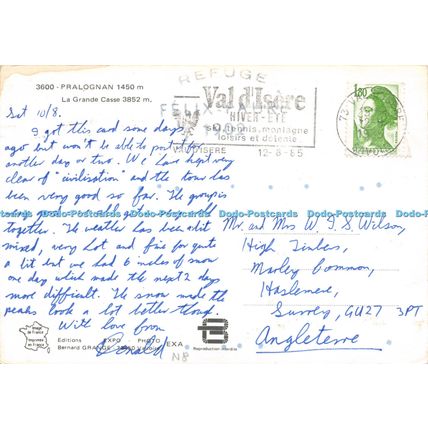 3600 - PRALOGNAN 1450 m
La Grande Casse 3852 m.
REFUGE
FELIX FAURE
Val d'Isère
HIVER - ETE
ski, tennis, montagne
loisirs et détente
VAL D'ISERE
12-8-85
1,80
73 VAL
SAVOIE
Sat 10/8.
I got this card some days
ago but won't be able to post it for
another day or two. We have kept very
clear of "civilisation" and the tour has
been very good so far. The group is
together. The weather has been a bit
mixed, very hot and fine for quite
a bit but we had 6 inches of snow
one day which made the next 2 days
more difficult. The snow made the
peaks look a lot better though.
With love from
Donald
Dodo-Postcards Dodo-Postcards Dodo-Postcards Dodo-Postcards Dodo-Postcards
Mr. and Mrs W. I. S. Wilson,
High Timbers,
Marley Common,
Haslemere,
Surrey, GU27 3PT
Angleterre
Image de France
Imprimée en France
Editions EXPO PHOTO EXA
Bernard GRANGE
Reproduction interdite
N8